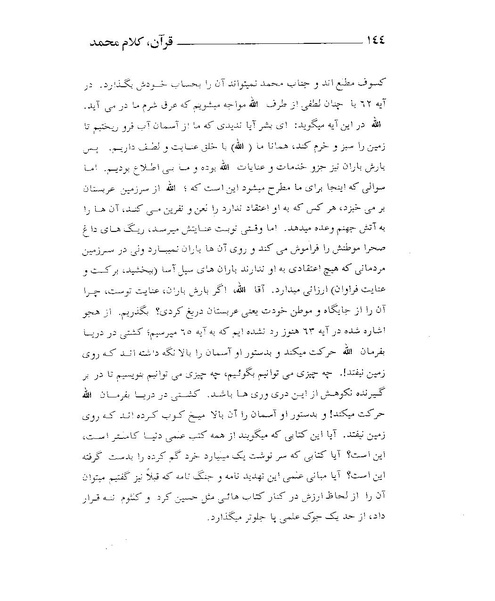 ١٤٤ قرآن، کلام محمد
کسوف مطلع اند و جناب محمد نمیتواند آن را بحساب خودش بگذارد. در
آیه ٦٢ با چنان لطفی از طرف الله مواجه میشویم که عرق شرم ما در می آید.
الله در این آیه میگوید: ای بشر آیا ندیدی که ما از آسمان آب فرو ریختیم تا
زمین را سبز و خرم کند، همانا ما (الله) با خلق عنایت و لطف داریم. پس
بارش باران نیز جزو خدمات و عنایات الله بوده و ما بی اطلاع بودیم. اما
سوالی که اینجا برای ما مطرح میشود این است که؛ الله از سرزمین عربستان
بر می خیزد، هر کس که به او اعتقاد ندارد را لعن و نفرین می کند، آن ها را
به آتش جهنم وعده میدهد. اما وقتی نوبت عنایتش میرسد، ریگ های داغ
صحرا موطنش را فراموش می کند و روی آن ها باران نمیبارد ولی در سرزمین
مردمانی که هیچ اعتقادی به او ندارند باران های سیل آسا (ببخشید، برکت و
عنایت فراوان) ارزانی میدارد. آقا الله، اگر بارش باران، عنایت توست، چرا
آن را از جایگاه و موطن خودت یعنی عربستان دریغ کردی؟ بگذریم. از هجو
اشاره شده در آیه ٦٣ هنوز رد نشده ایم که به آیه ٦٥ میرسیم؛ کشتی در دریا
بفرمان الله حرکت میکند و بدستور او آسمان را بالا نگه داشته اند که روی
زمین نیفتد!. چه چیزی می توانیم بگوئیم، چه چیزی می توانیم بنویسیم تا در بر
گیرنده نکوهش از این دری وری ها باشد. کشتی در دریا بفرمان الله
حرکت میکند! و بدستور او آسمان را آن بالا میخ کوب کرده اند که روی
زمین نیفتد. آیا این کتابی که میگویند از همه کتب علمی دنیا کاملتر است،
این است؟ آیا کتابی که سر نوشت یک میلیارد خرد گم کرده را بدست گرفته
این است؟ آیا مبانی علمی این تهدید نامه و جنگ نامه که قبلاً نیز گفتیم میتوان
آن را از لحاظ ارزش در کنار کتاب هائی مثل حسین کرد و کلثوم ننه قرار
داد، از حد یک جوک علمی پا جلوتر میگذارد.